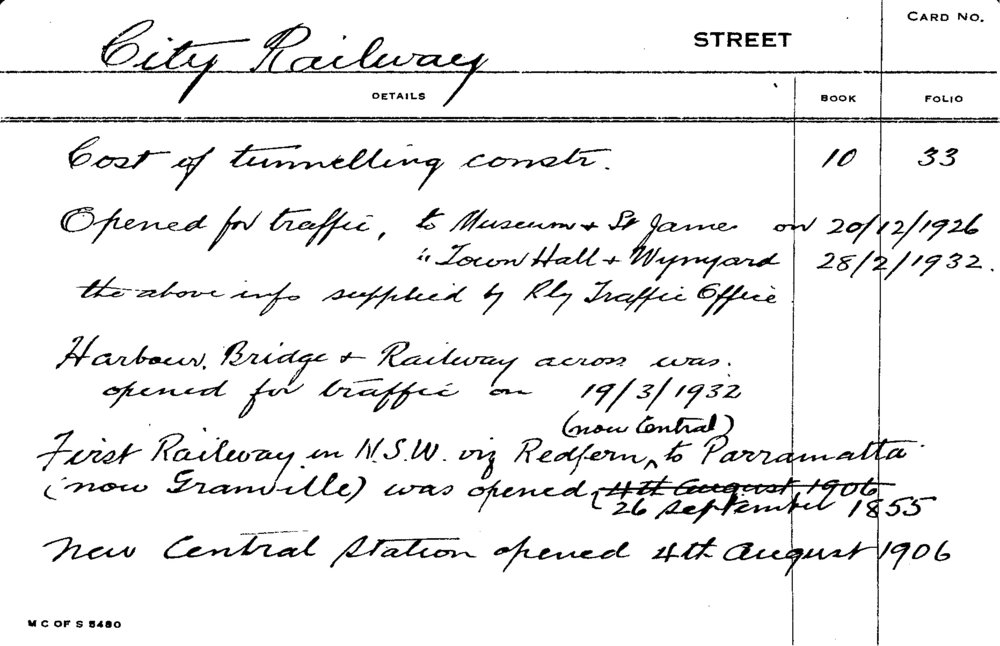 CARD NO.
City Railway STREET
DETAILS BOOK FOLIO
Cost of tunnelling constr. 10 33
Opened for traffic, to Museum + St James on 20/12/1926
" Town Hall + Wynyard 28/2/1932.
the above info supplied by Rly Traffic Office
Harbour Bridge + Railway across was
opened for traffic on 19/3/1932
(now Central)
First Railway in N.S.W. viz Redfern ^ to Parramatta
(now Granville) was opened, 4th August 1906
26 September 1855
New Central Station opened 4th August 1906
M C OF S 5480